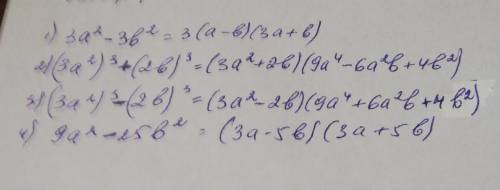 1) 3a² - 3b² = 3(a - b)(3a + b)
2) (3a²)³ + (2b)³ = (3a² + 2b)(9a⁴ - 6a²b + 4b²)
3) (3a²)³ - (2b)³ = (3a² - 2b)(9a⁴ + 6a²b + 4b²)
4) 9a² - 25b² = (3a - 5b)(3a + 5b)